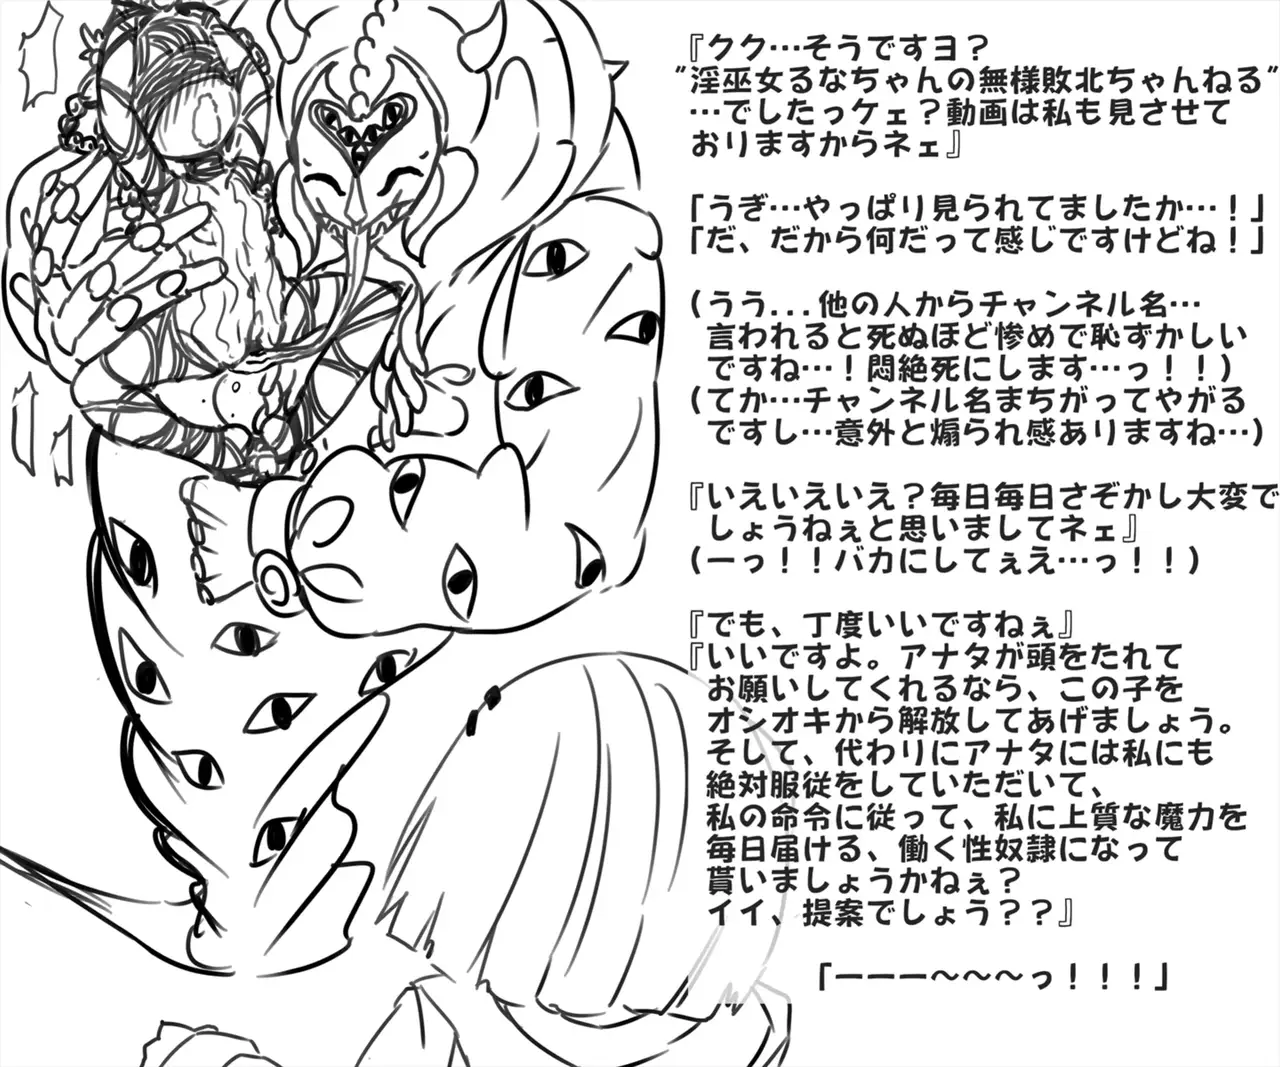 『クク…そうですヨ？
"淫巫女るなちゃんの無様敗北ちゃんねる"
…でしたっケェ？動画は私も見させて
おりますからネェ』
「うぎ…やっぱり見られてましたか…！」
「だ、だから何だって感じですけどね！」
(うう...他の人からチャンネル名…
言われると死ぬほど惨めで恥ずかしい
ですね…！悶絶死にします…っ！！)
(てか…チャンネル名まちがってやがる
ですし…意外と煽られ感ありますね…)
『いえいえいえ？毎日毎日さぞかし大変で
しょうねぇと思いましてネェ』
(ーっ！！バカにしてぇえ…っ！！)
『でも、丁度いいですねぇ』
『いいですよ。アナタが頭をたれて
お願いしてくれるなら、この子を
オシオキから解放してあげましょう。
そして、代わりにアナタには私にも
絶対服従をしていただいて、
私の命令に従って、私に上質な魔力を
毎日届ける、働く性奴隷になって
貰いましょうかねぇ？
イイ、提案でしょう？？』
「ーーー～～～っ！！！」